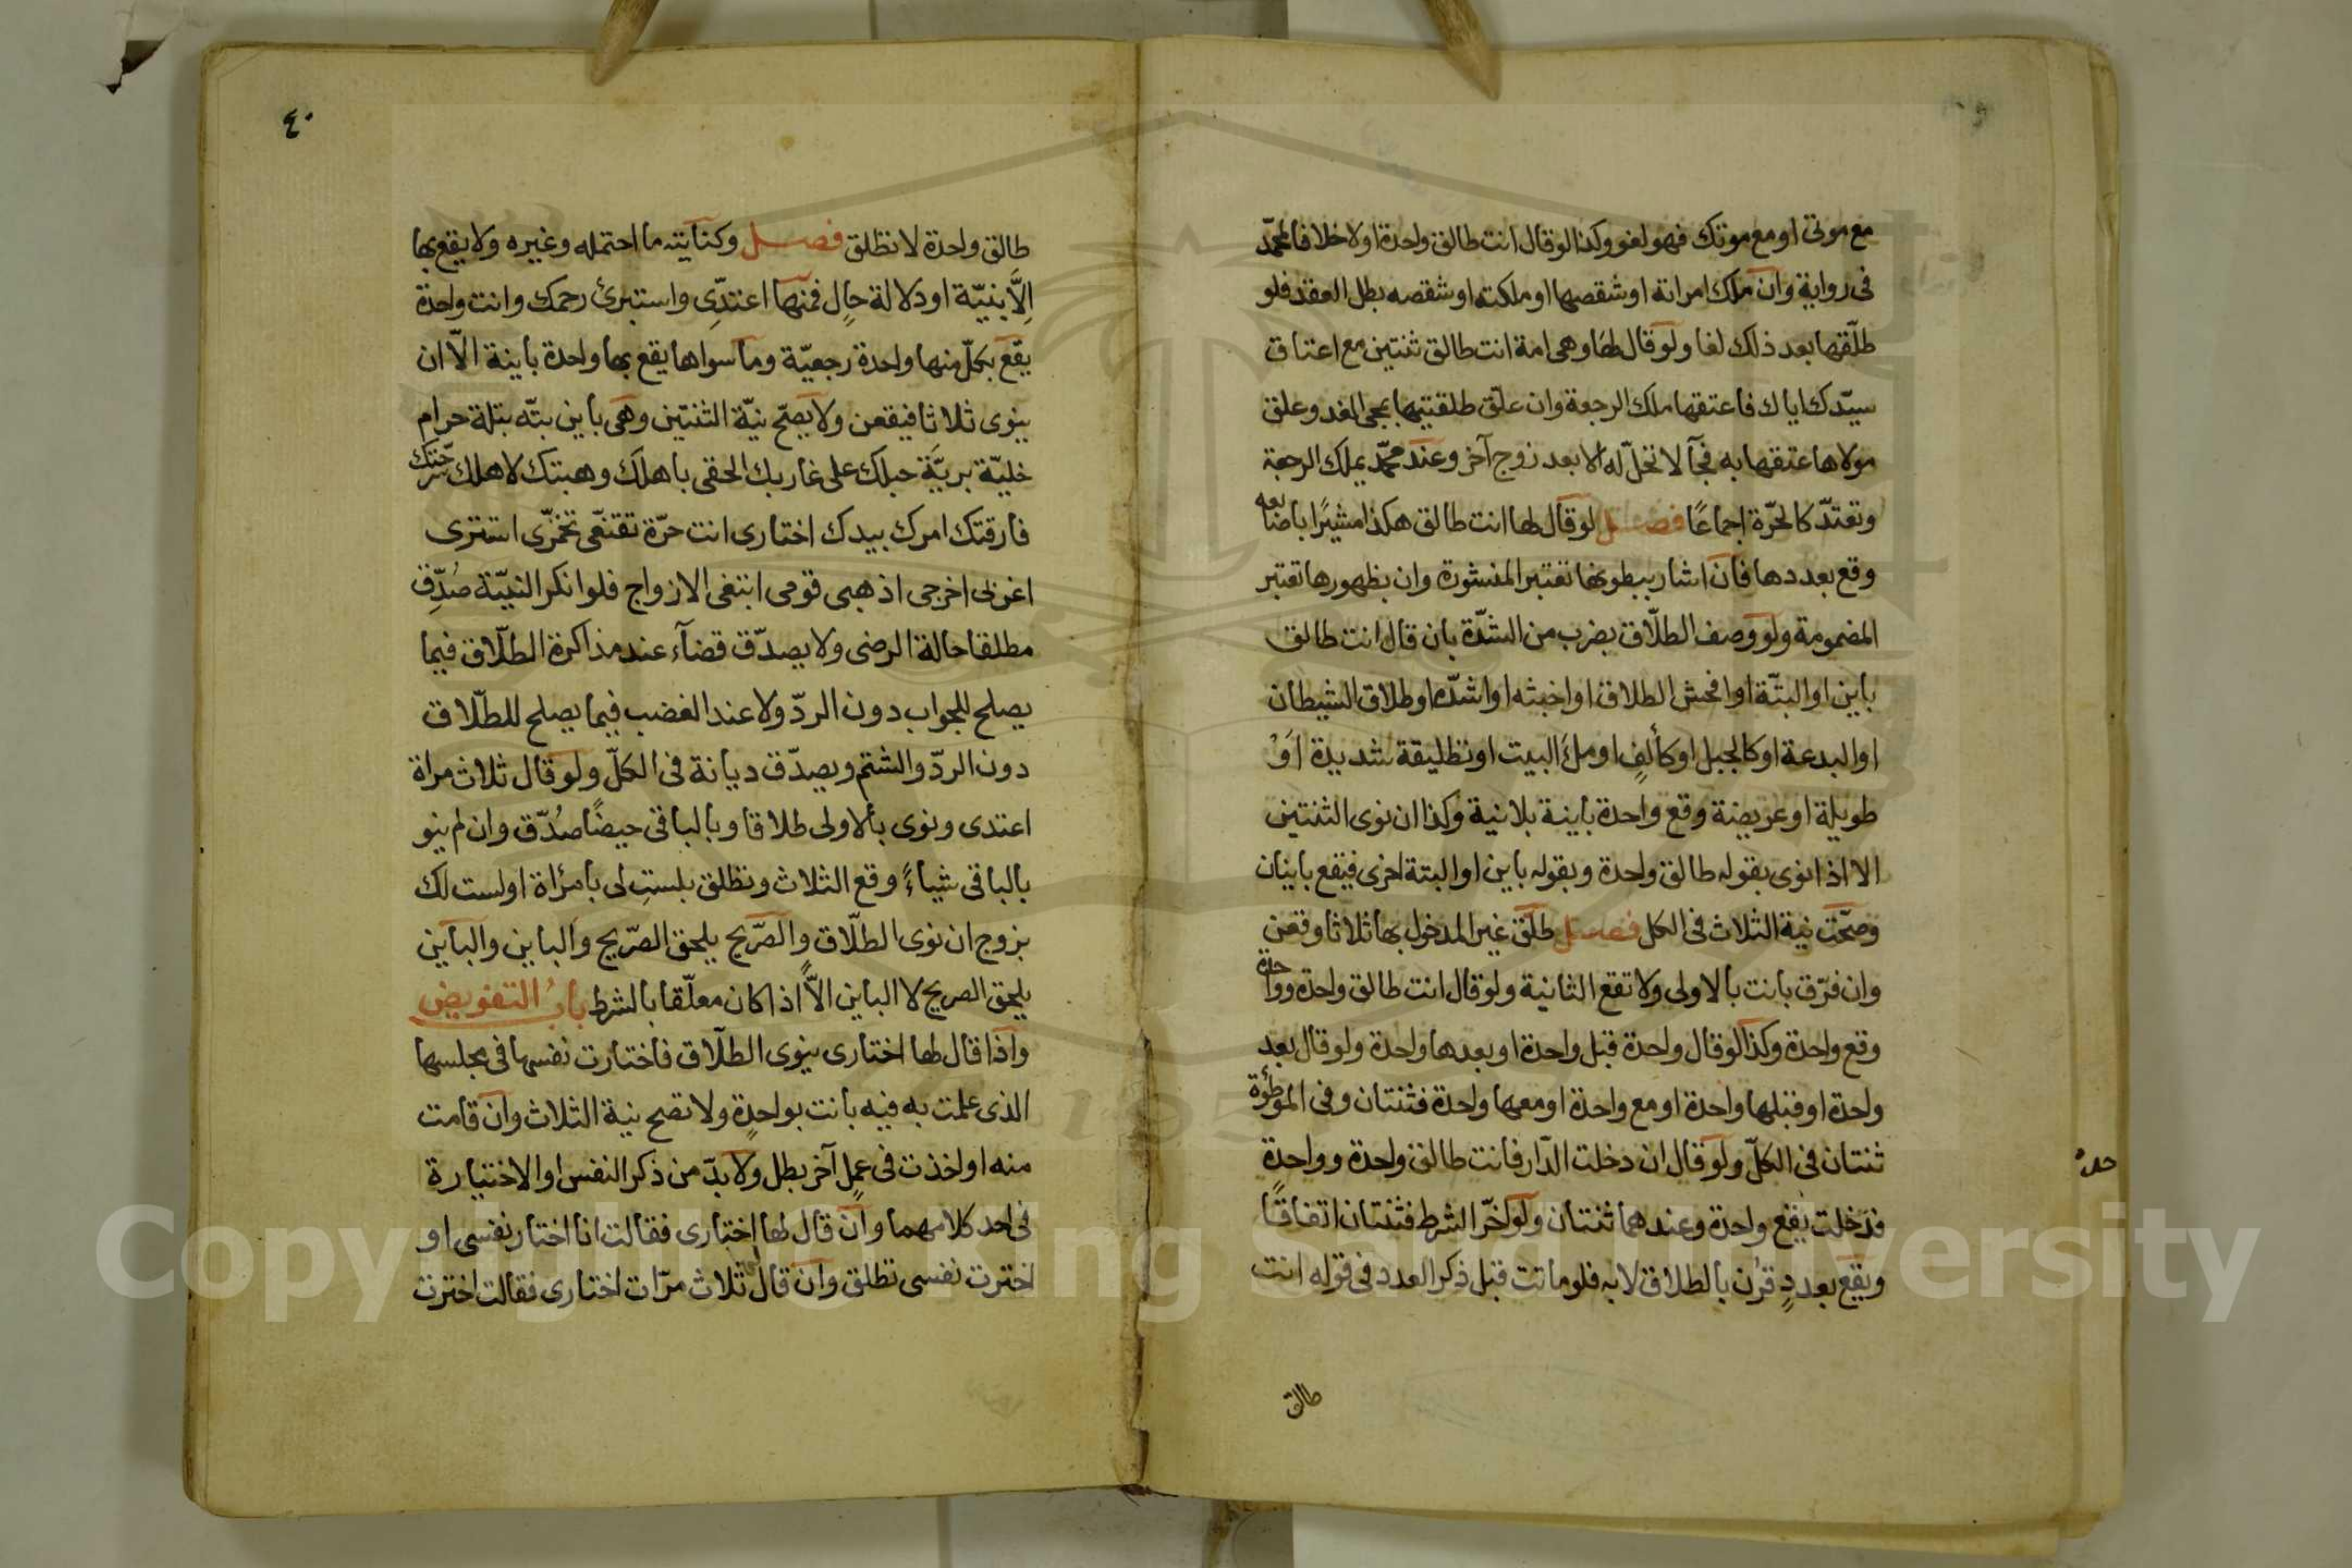 مع موتى او مع موتك فهو لغو وكذا لو قال انت طالق واحدة اولا خلافا لمحمّد
فى رواية وان ملك امراته او شقصها او ملكته او شقصه بطل العقد فلو
طلّقها بعد ذلك لغا ولو قال لها وهى امة انت طالق ثنتين مع اعتاق
سيّدك اياك فاعتقها ملك الرجعة وان علّق طلقتيها بمجى الغد وعلق
مولاها عتقها به فجآ لا تحلّ له الا بعد زوج آخر وعند محمّد يملك الرجعة
وتعتدّ كالحرّة اجماعًا فصل لو قال لها انت طالق هكذا مشيرًا باصابعه
وقع بعددها فان اشار ببطونها تعتبر المنشورة وان بظهورها تعتبر
المضمومة ولو وصف الطلّاق بضرب من الشدّة بان قال انت طالق
باين او البتّة او افحش الطلاق او اخبثه او اشدّه او طلاق الشيطان
او البدعة او كالجبل او كألفٍ او ملء البيت او تطليقة شديدة اَوْ
طويلة او عريضة وقع واحدة باينة بلا نية وكذا ان نوى الثنتين
الا اذا نوى بقوله طالق واحدة وبقوله باين او البتة اخرى فيقع باينان
وصحّت نية الثلاث فى الكل فصل طلّق غير المدخول بها ثلاثا وقعن
وان فرّق بانت بالاولى ولا تقع الثانية ولو قال انت طالق واحدة وواحدة
وقع واحدة وكذا لو قال واحدة قبل واحدة او بعدها واحدة ولو قال بعد
واحدة او قبلها واحدة او مع واحدة او معها واحدة فثنتان وفى الموطؤة
ثنتان فى الكلّ ولو قال ان دخلت الدّار فانت طالق واحدة وواحدة
حده
فدخلت يقع واحدة وعندهما ثنتان ولو اخّر الشرط فثنتان اتفاقًا
ويقع بعددٍ قرن بالطلاق لا به فلو ماتت قبل ذكر العدد فى قوله انت
طالق
٤٠
طالق واحدة لا تطلق فصل وكنايته ما احتمله وغيره ولا يقع بها
اِلَّا بنيّة او دلالة حالٍ فمنها اعتدّى واستبرئ رحمك وانت واحدة
يقع بكلّ منها واحدة رجعيّة وما سواها يقع بها واحدة باينة الّا ان
ينوى ثلاثا فيقعن ولا يصحّ نيّة الثنتين وهى باين بتّه بتلة حرام
خليّة بريّة حبلك على غاربك الحقى باهلك وهبتك لاهلك سرّحتك
فارقتك امرك بيدك اختارى انت حرّة تقنعّى تخمّرى استترى
اغربى اخرجى اذهبى قومى ابتغى الازواج فلو انكر النيّة صُدِّق
مطلقا حالة الرضى ولا يصدّق قضآء عند مذاكرة الطلّاق فيما
يصلح للجواب دون الردّ ولا عند الغضب فيما يصلح للطلّاق
دون الردّ والشتم ويصدّق ديانة فى الكلّ ولو قال ثلاث مراة
اعتدى ونوى بالاولى طلاقا وبالباقى حيضًا صُدّق وان لم ينو
بالباقى شياءً وقع الثلاث وتطلق بلستِ لى بامرُاة او لست لك
بزوج ان نوى الطلّاق والصّريح يلحق الصّريح والباين والباين
يلحق الصريح لا الباين الاّ اذا كان معلّقا بالشرط بابُ التفويض
واذا قال لها اختارى ينوى الطلّاق فاختارت نفسها فى مجلسها
الذى علمت به فيه بانت بواحدةٍ ولا تصح نية الثلاث وان قامت
منه او اخذت فى عملٍ آخر بطل ولا بدّ من ذكر النفس او الاختيارة
فى احد كلامهما وان قال لها اختارى فقالت انا اختار نفسى او
اخترت نفسى تطلق وان قال ثلاث مرّات اختارى فقالت اخترت